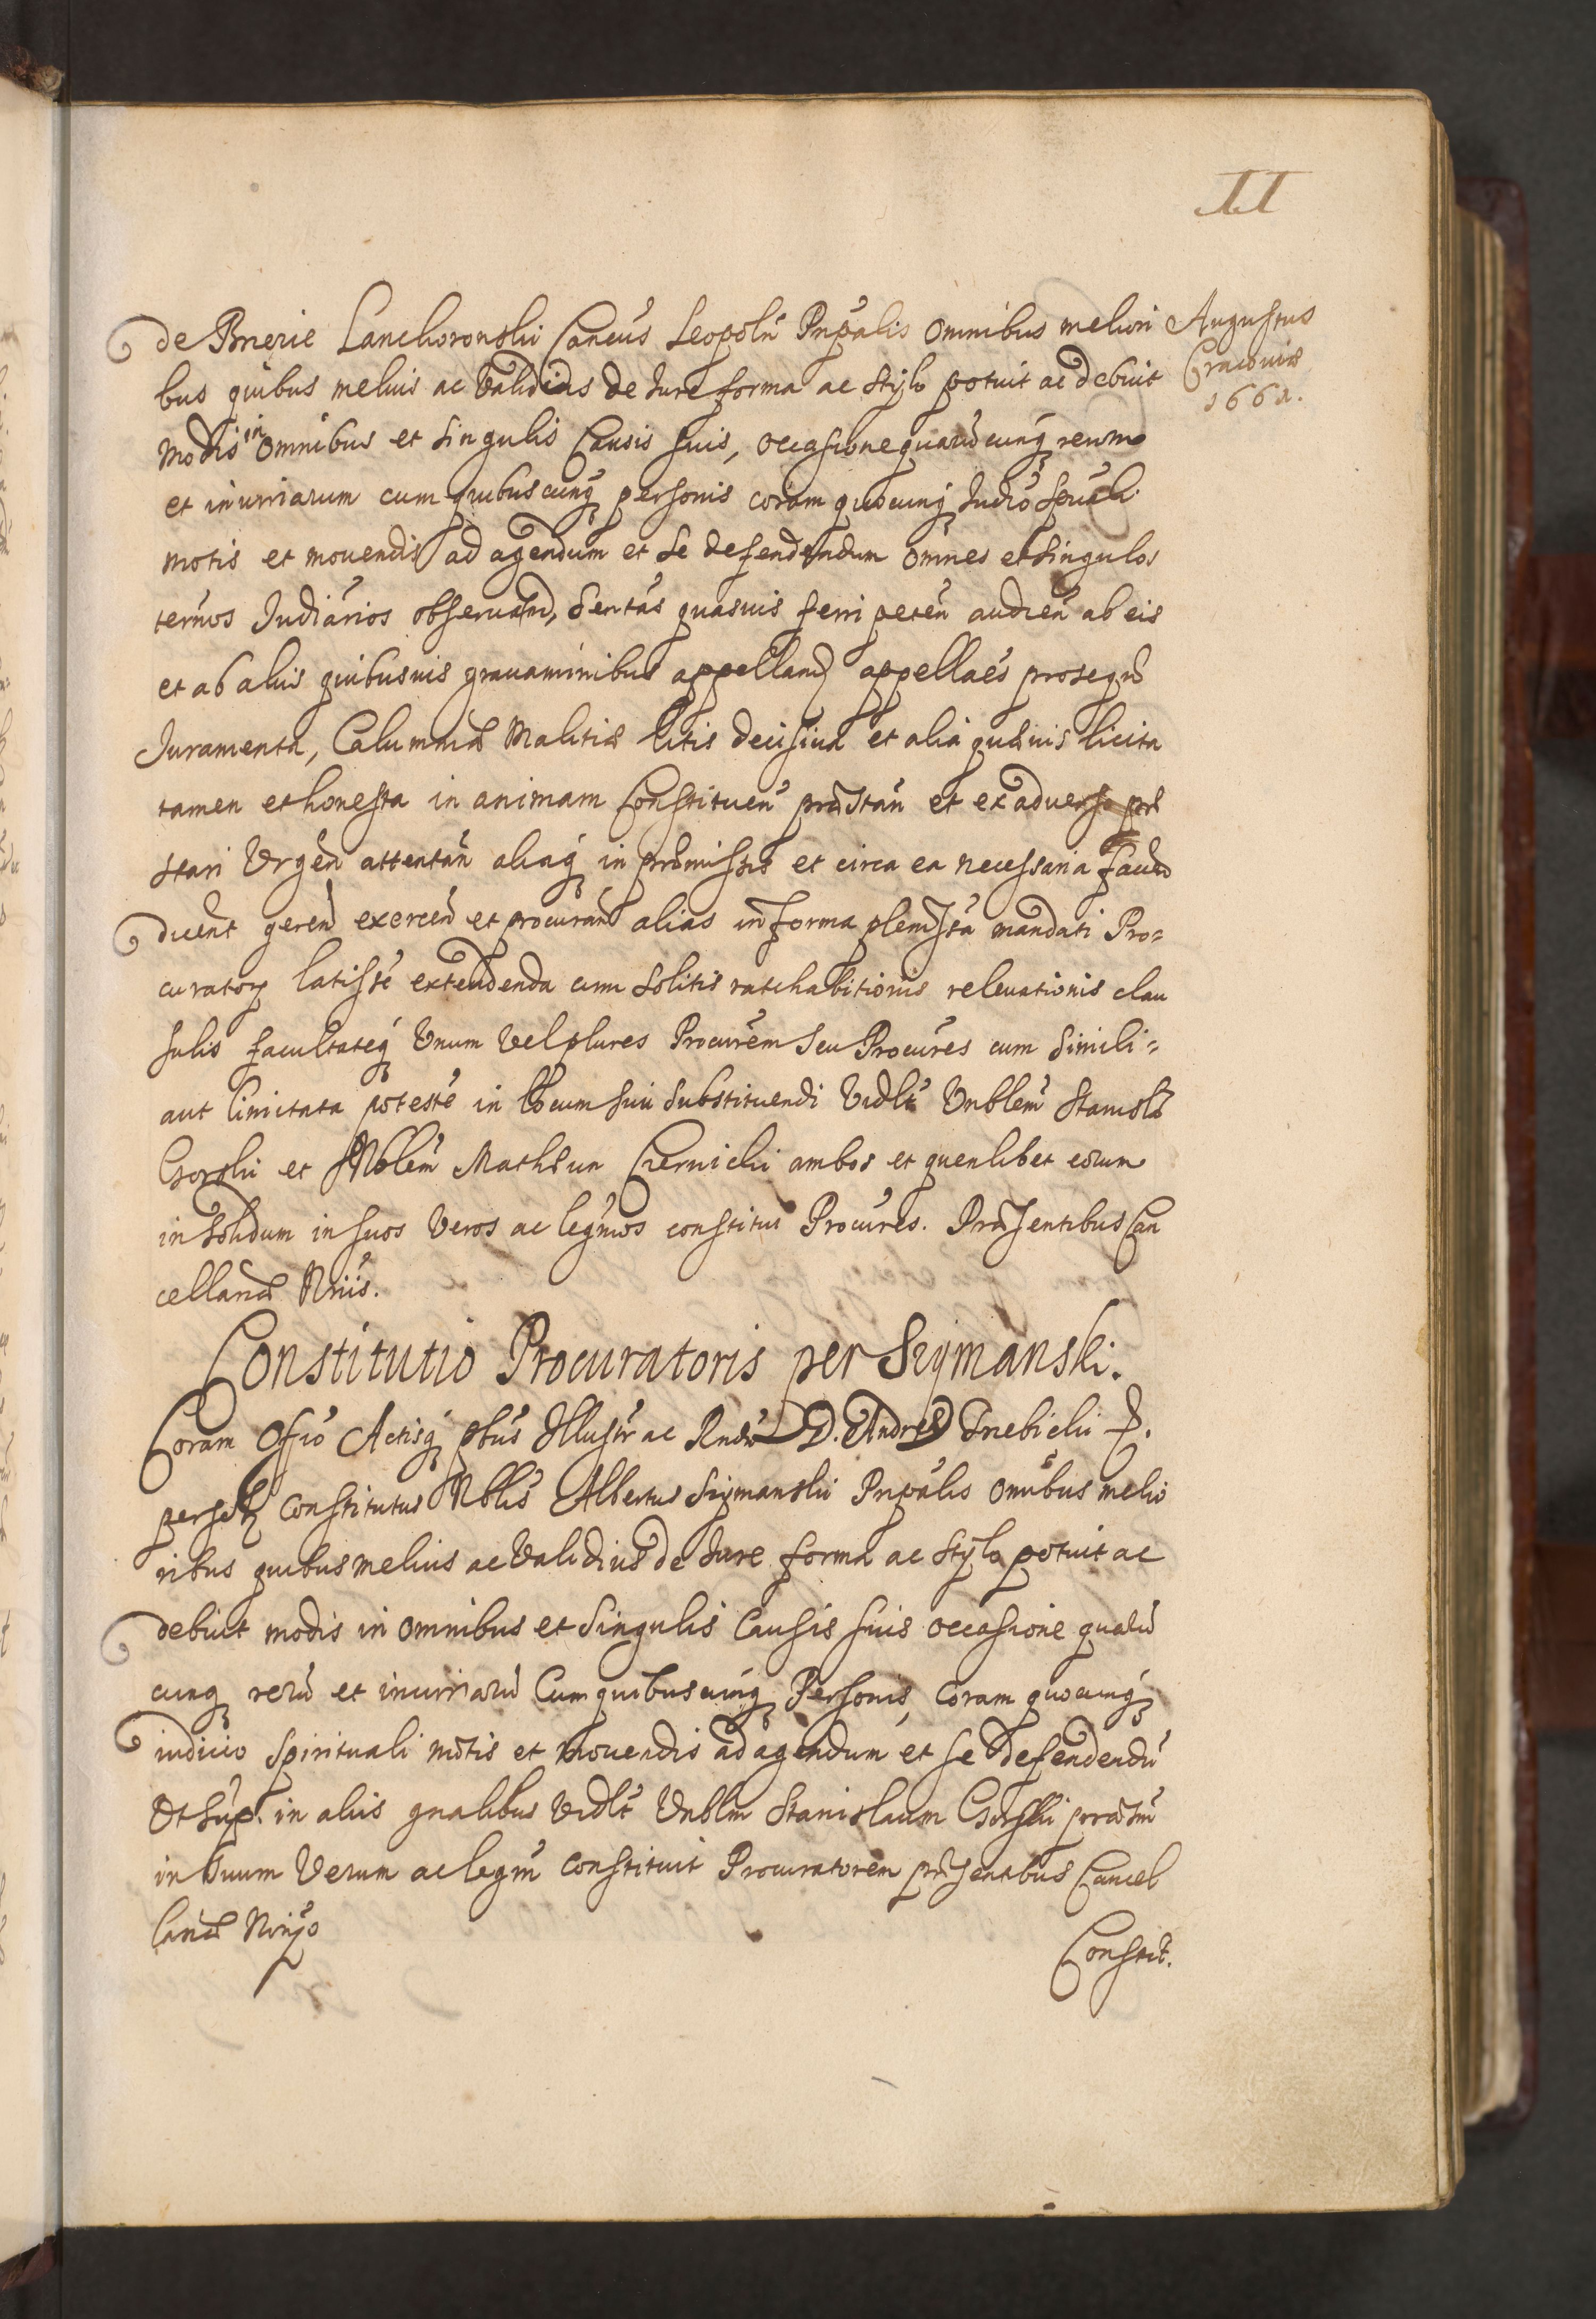 II
Augustus
Cracoviæ
1661.
de Brzezie Lanckoronski Cancus Leopoln Prñpalis omnibus meliori
bus quibus melius ac validius de Iure forma ac stylo potuit ac debuit
modis in omnibus et singulis Causis suis, occasione quarũcunq rerum
et iniuriarum cum quibuscunq personis coram quocunq Iudio spuali
motis et movendis ad agendum et se defendendum omnes et singulos
termos Iudiarios observand, Sentas quasvis ferri peten audien ab eis
et ab aliis quibusvis gravaminibus appelland appellaes prosequ
Iuramenta, Calumniæ Malitiæ litis decisiva et alia quævis licita
tamen et honesta in animam Constituen præstan et ex adverso præ
stari Urgen attentan aliaq in præmissis et circa ea necessaria faciend
dicend gerend exercend et procurand alias in forma pleniss̃a mandati Pro=
curatorÿ latisse extendenda cum solitis ratihabitionis relevationis clau
sulis facultateq Unum vel plures Procurem seu Procures cum simili=
aut limitata poteste in locum sui substituendi Vidlt Vnblem Stanislã
Gorski et Nblem Mathæum Czernicki ambos et quemlibet eorum
in solidum in suos veros ac legmos constituit Procures. Præsentibus Can
cellariæ Nriis.
Constitutio Procuratoris per Szymanski.
Coram Offio Actisq ptbus Illustr ac Rndi D. D. Andreæ Trzebicki P.
persolr constitutus Nblis Albertus Szymanski Prñpalis omibus melio
ribus quibus melius ac validius de Iure forma ac stylo potuit ac
debuit modis in omnibus et singulis Causis suis occasione quarũ
cunq rerũ et iniuriarũ Cum quibuscunq Personis, coram quocunq
iudicio spirituali motis et movendis ad agendum et se defendendũ
Ut sup. in aliis gnalibus Vidlt Vnblm Stanislaum Gorski prætm
in suum Verum ac legm constituit Procuratorem præsentibus Cancel
lariæ Noriis
Constit.